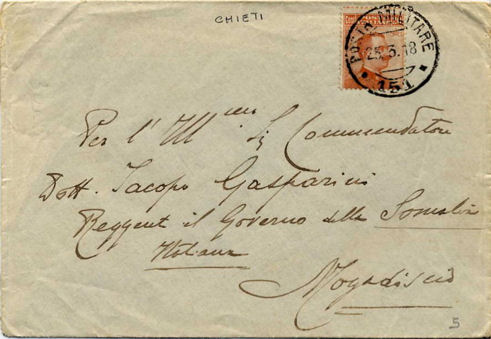 CHIETI
POSTA MILITARE
25.3.18
151
Per l'Ill.mo Sig Commendatore
Dott. Jacopo Gasparini
Reggent il Governo della Somalia
Italiana
Mogadiscio
5